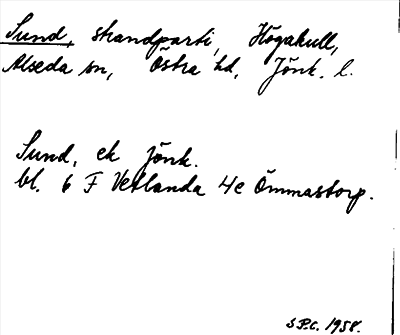 Sund, strandparti, Högakull,
Alseda sn, Östra hd, Jönk. l.
Sund, ek Jönk.
bl. 6 F Vetlanda 4e Ömmastorp.
S.P.C. 1958.